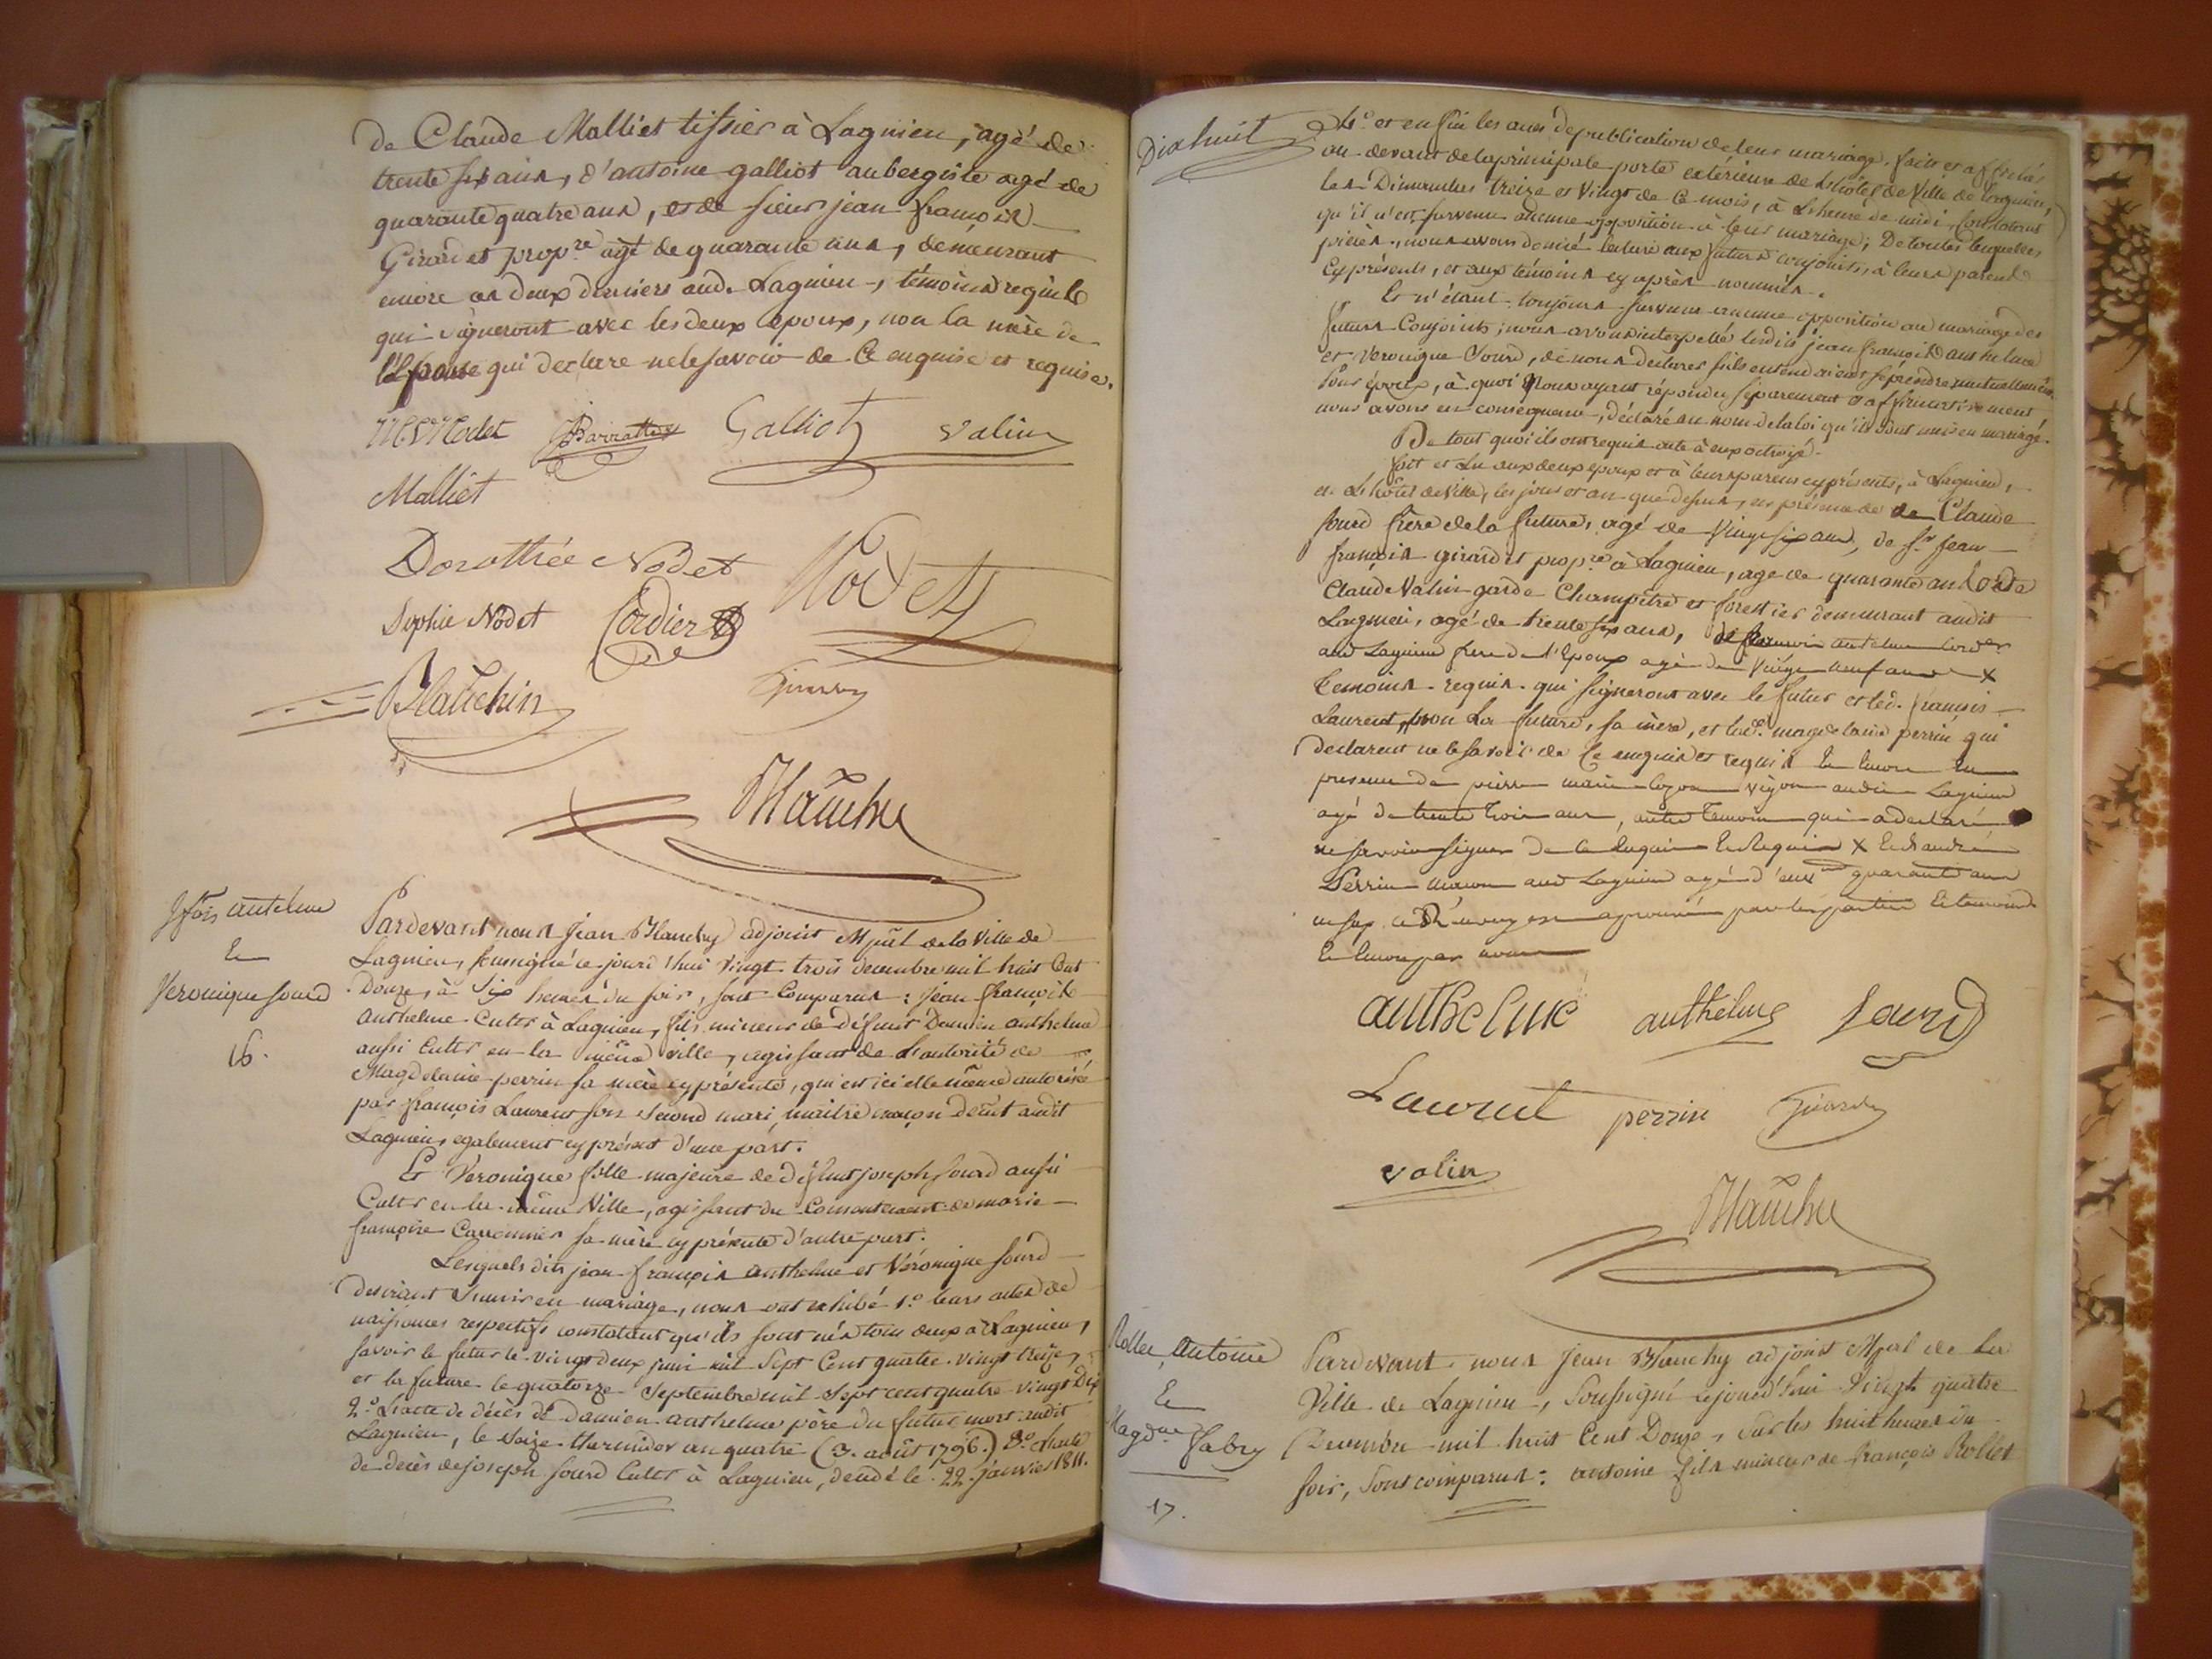 de Claude Malliet tissier à Lagnieu, agé de
trente six ans, d'antoine galliot aubergiste agé de
quarante quatre ans, et de sieur jean françois
Girardet propre agé de quarante ans, demeurant
encore ces deux derniers aud. Lagnieu, témoins requis
qui signeront avec les deux epoux, non la mère de
l'Epouse qui declare ne le savoir de ce enquise et requise.
Galliot Valin
Malliet
Dorothée Nodet Nodet
Sophie Nodet Cordier
Blanchin Girardet
Blanchy
Jfois anthelme
Et
Veronique sourd
16.
Pardevant nous Jean Blanchy adjoint Mpal de la Ville de
Lagnieu, soussigné ce jourd'hui vingt trois decembre mil huit Cent
Douze, à six heures du soir, sont Comparus : jean françois
anthelme Cultr à Lagnieu, fils mineur de défunt Damien anthelme
aussi Cultr en la même ville, agissant de L'autorité de
Magdelaine perrin sa mère cy présente, qui est ici elle même autorisée
par françois Laurent son second mari, maitre maçon demt audit
Lagnieu, egalement cy présent d'une part.
Et Véronique fille majeure de défunt joseph sourd aussi
Cultr en la même Ville, agissant du Consentement de marie
françoise sa mère cy présente d'autre part.
Lesquels dits jean françois anthelme et Véronique sourd
desirant s'unir en mariage, nous ont exhibé 1.o leurs actes de
naissances respectifs constatant qu'ils sont nés tous deux à Lagnieu,
savoir le futur le vingt deux juin mil Sept Cent quatre vingt treize,
et la future le quatorze Septembre mil sept cent quatre vingt Dix
2.o L'acte de décès de damien anthelme père du futur mort audit
Lagnieu, le seize thermidor an quatre (3. août 1796.) 3.o L'acte
de decès de joseph sourd Cultr à Lagnieu, decedé le 22. janvier 1811.
Dixhuit
4.o et enfin les actes de publication de leur mariage, faits et affichés
au devant de la principale porte extérieure de L'hôtel de Ville de Lagnieu,
les Dimanches treize et Vingt de Ce mois, à L'heure de midi, Constatant
qu'il n'est survenu aucune opposition à leur mariage; De toutes lesquelles
pièces, nous avons donné lecture aux futurs conjoints, à leurs parens
cy présents, et aux témoins cy après nommés.
Et n'étant toujours survenu aucune opposition au mariage des
futurs Conjoints, nous avons interpellé lesdits jean françois anthelme
et Veronique Sourd, de nous declarer s'ils entendaient se prendre mutuellement
Pour époux, à quoi Nous ayant répondu séparement et affirmativement
nous avons en conséquence, déclaré au nom de la loi qu'ils sont unis en mariage.
De tout quoi ils ont requis acte à eux octroyé.
fait et Lu aux deux epoux et à leurs parens cy présents, à Lagnieu,
en L'hôtel de Ville, les jour et an que dessus, en présence de Claude
sourd frère de la future, agé de Vingt six ans, de sr jean
françois girardet propre à Lagnieu, agé de quarante ans et de
Claude Valin garde Champêtre et forestier demeurant audit
Lagnieu, agé de trente six ans,
aud Lagnieu frere de l'Epoux agé de Vingt neuf ans X
temoins requis qui signeront avec le futur et led. françois
Laurent, non La future, sa mère, et lade. magdelaine perrin qui
declarent ne le savoir de ce enquis et requis Et Encore En
presence de pierre marie vigon audit Lagnieu
agé de trente trois ans, autre temoin qui a declaré
ne savoir signer de ce Enquis Et Requis X
Perrin maçon aud Lagnieu agé d'environ quarante ans
Et Encore par nous
anthelme anthelme Sourd
Laurent perrin Girardet
Valin
Blanchy
Rollet Antoine
Et
Magdne Fabry
17.
Pardevant nous Jean Blanchy adjoint Mpal de La
Ville de Lagnieu, Soussigné cejourd'hui Vingt quatre
Decembre mil huit Cent Douze, sur les huit heures du
soir, Sont comparus : antoine fils mineur de françois Rollet